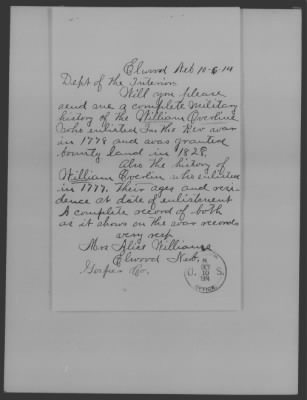 Elwood Neb 10-6-14
Dept of the Interior
Will you please
send me a complete Military
history of the William Overline
who enlisted in the Rev war
in 1778 and was granted
bounty land in 1828.
Also the history of
William Overlin who enlisted
in 1777. Their ages and resi-
dence at date of enlistment
A complete record of both
as it shows on the war records
very resp
Mrs Alice Williams
Elwood Neb.
Gosper Co.
OCT
10
1914
U. S.
OFFICE